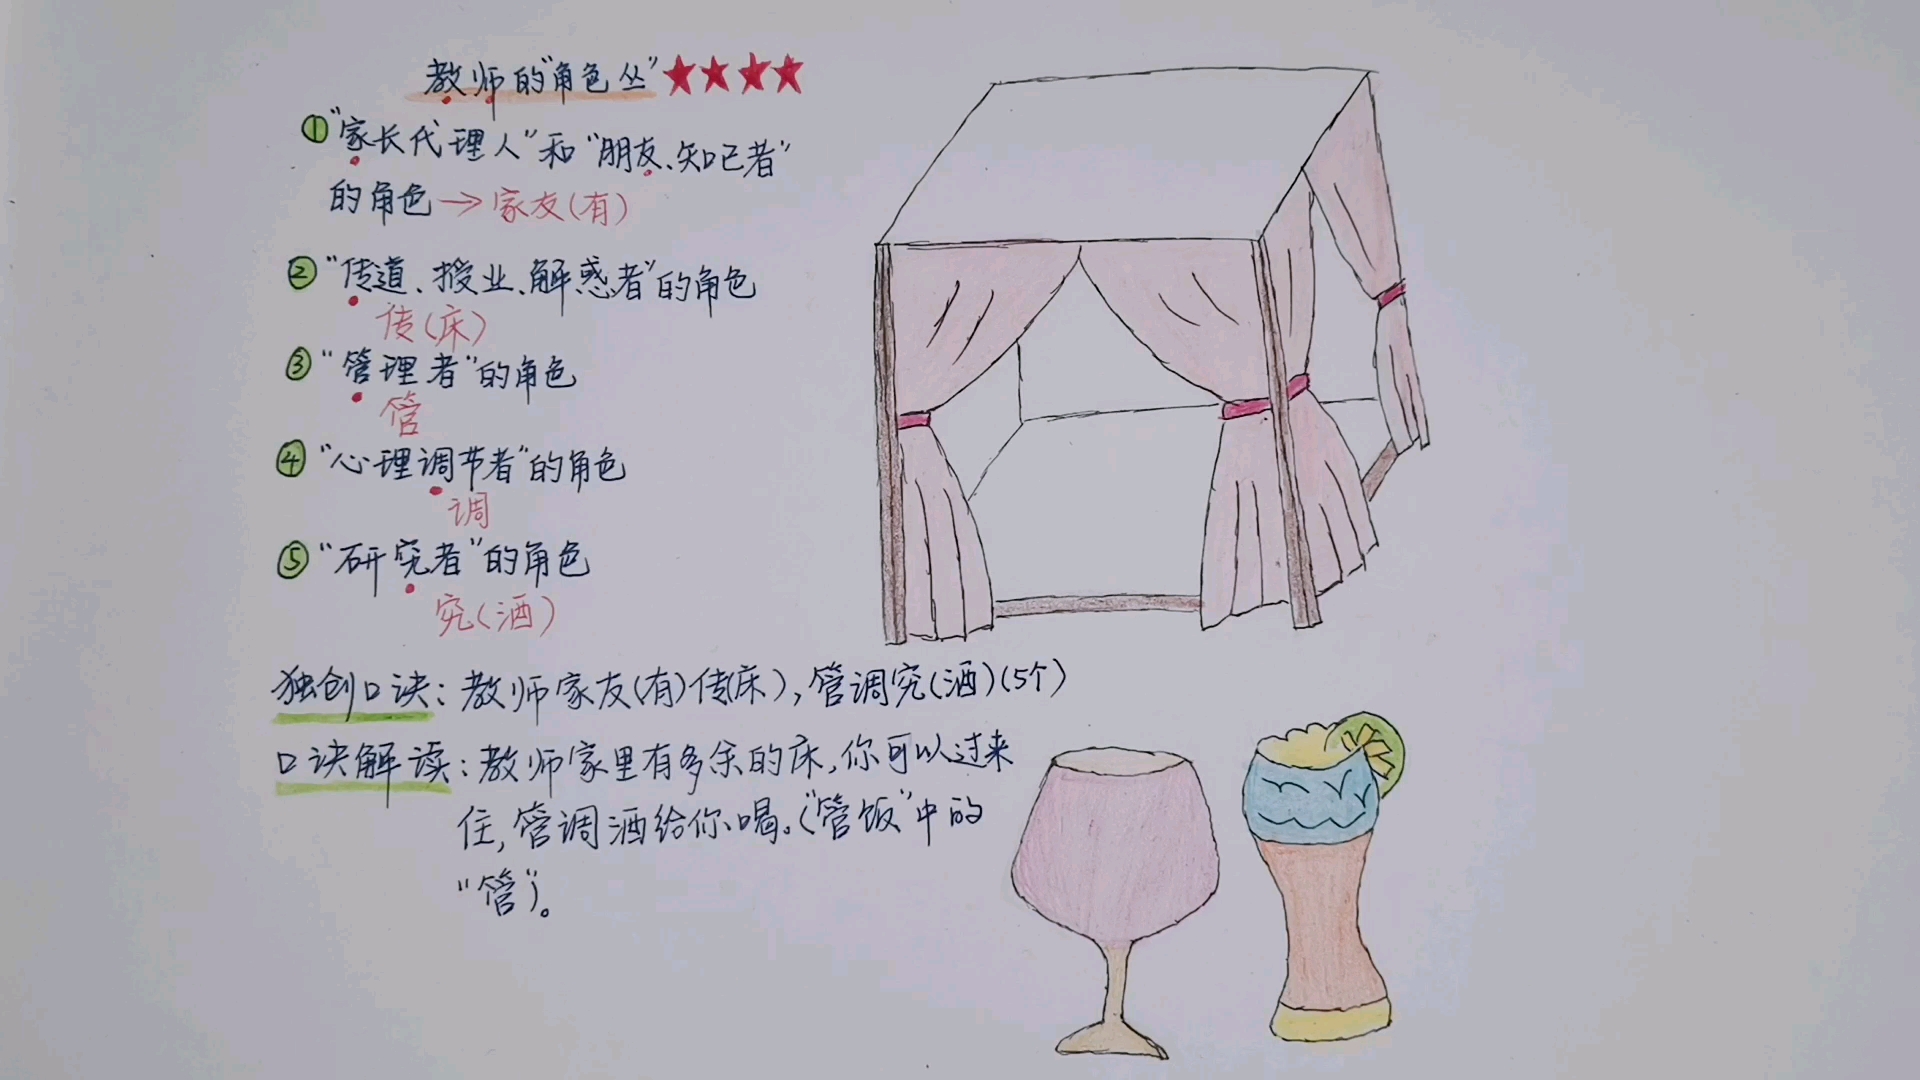 教师的"角色丛"★★★★
①"家长代理人"和"朋友、知己者"
的角色→家友(有)
②"传道、授业、解惑者"的角色
传(床)
③"管理者"的角色
管
④"心理调节者"的角色
调
⑤"研究者"的角色
究(酒)
独创口诀:教师家友(有)传(床),管调究(酒)(5个)
口诀解读:教师家里有多余的床,你可以过来
住,管调酒给你喝。("管饭"中的
"管")。